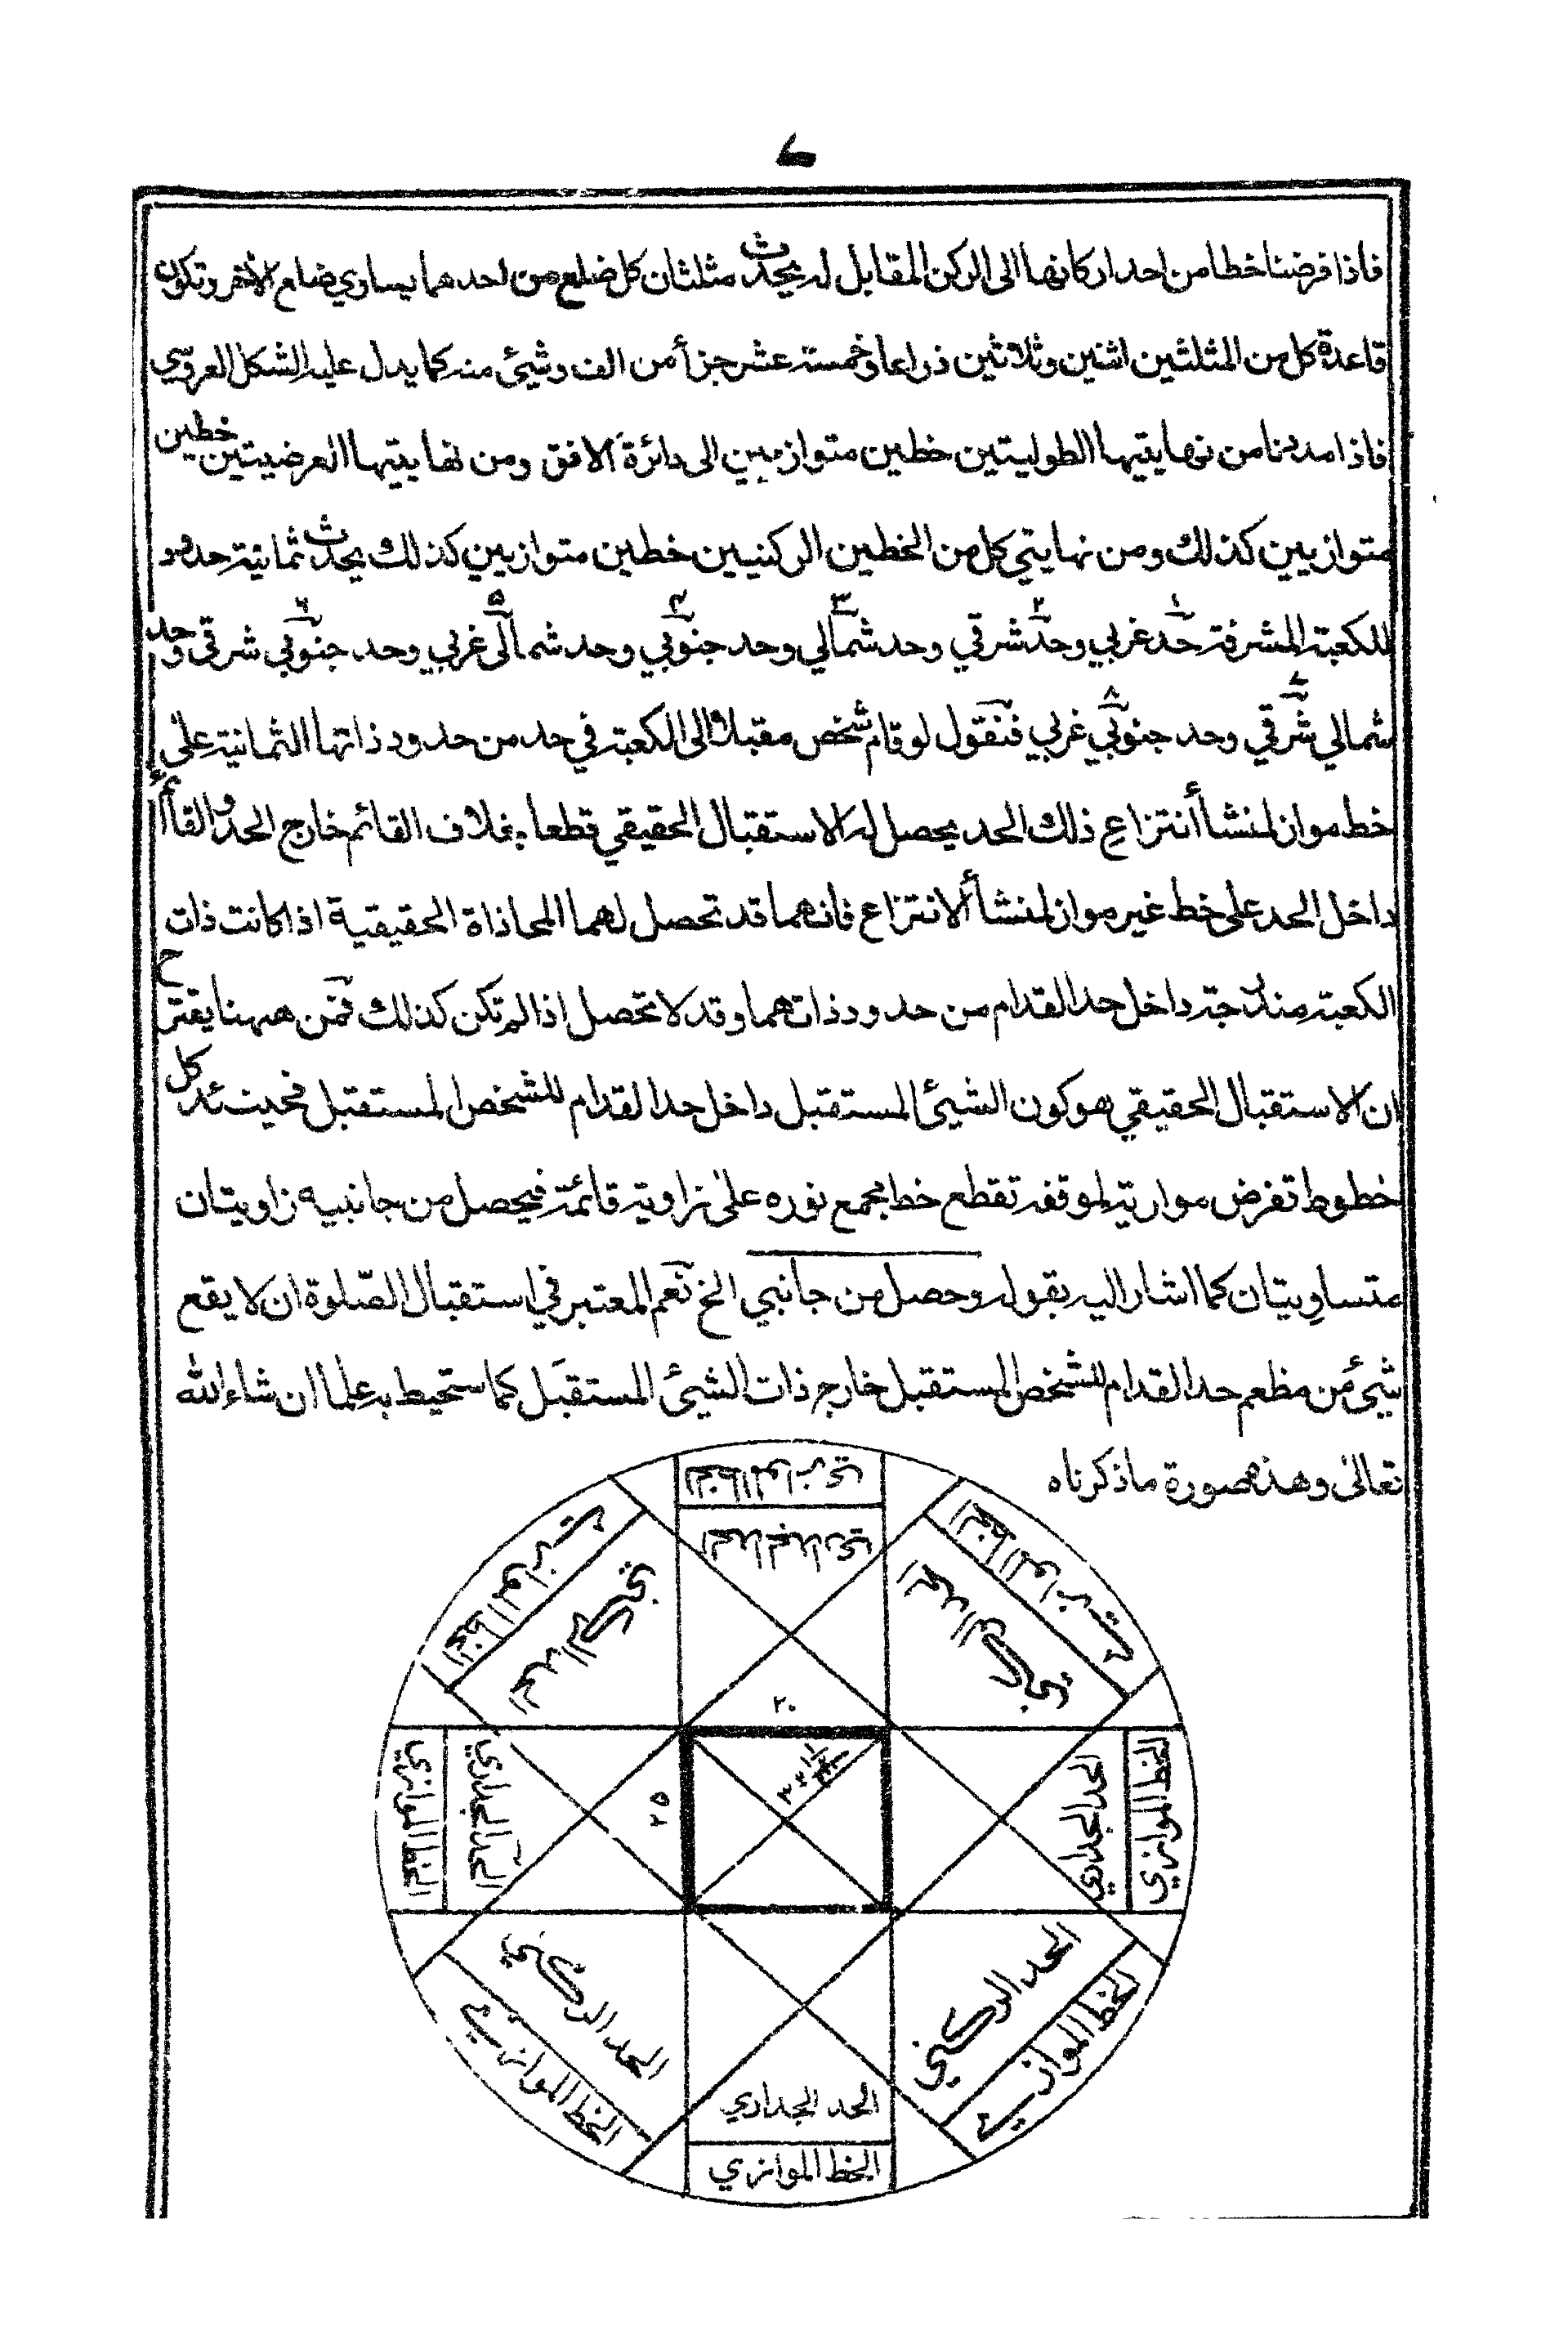 فاذا فرضنا خطا من احد اركانها الى الركن المقابل له يحدث مثلثان كل ضلع من احدهما يساوي ضلع الأخر وتكون
قاعدة كل من المثلثين اثنين وثلاثين ذراعا وخمسة عشر جزأ من الف وشيئ منه كما يدل عليه الشكل العروسي
فاذا مددنا من نهايتيها الطوليتين خطين متوازيين الى دائرة الافق ومن نهايتيها العرضيتين خطين
متوازيين كذلك ومن نهايتي كل من الخطين الركنيين خطين متوازيين كذلك يحدث ثمانية حدود
للكعبة المشرفة حد غربي وحد شرقي وحد شمالي وحد جنوبي وحد شمالى غربي وحد جنوبي شرقي وحد
شمالي شرقي وحد جنوبي غربي فنقول لو قام شخص مقبلا الى الكعبة في حد من حدود ذاتها الثمانية على
خط مواز لمنشأ أنتزاع ذلك الحد يحصل له الاستقبال الحقيقي قطعا بخلاف القائم خارج الحد والقائم
داخل الحد على خط غير مواز لمنشأ الانتزاع فانهما قد تحصل لهما المحاذاة الحقيقية اذا كانت ذات
الكعبة مندرجة داخل حد القدام من حدود ذاتهما وقد لا تحصل اذا لم تكن كذلك فمن ههنا يقترح
ان الاستقبال الحقيقي هو كون الشيئ المستقبل داخل حد القدام للشخص المستقبل فحينئذ كل
خطوط تفرض موازية لموقفه تقطع خط مجمع نوره على زاوية قائمة فيحصل من جانبيه زاويتان
متساويتان كما اشار اليه بقوله وحصل من جانبي الخ نعم المعتبر في استقبال الصلوة ان لا يقع
شيئ من مظعم حد القدام للشخص المستقبل خارج ذات الشيئ المستقبل كما ستحيط به علما ان شاء الله
تعالى وهذه صورة ما ذكرناه
الخط الموازي
الحد الجداري
الخط الموازي
الحد الركني
الخط الموازي
الحد الركني
٢٠
٢٥
الخط الموازي
الحد الجداري
الحد الجداري
الخط الموازي
الحد الركني
الخط الموازي
الحد الركني
الخط الموازي
الحد الجداري
الخط الموازي